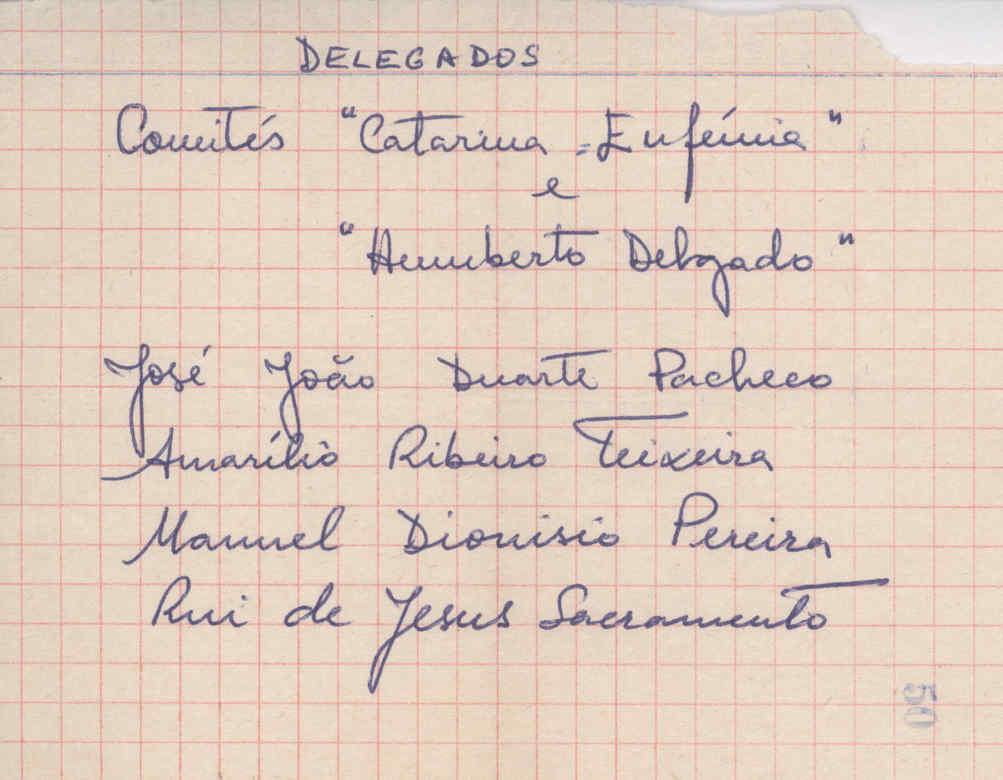 DELEGADOS
Comités "Catarina Eufémia"
e
"Humberto Delgado"
José João Duarte Pacheco
Amarílio Ribeiro Teixeira
Manuel Dionisio Pereira
Rui de Jesus Sacramento
50